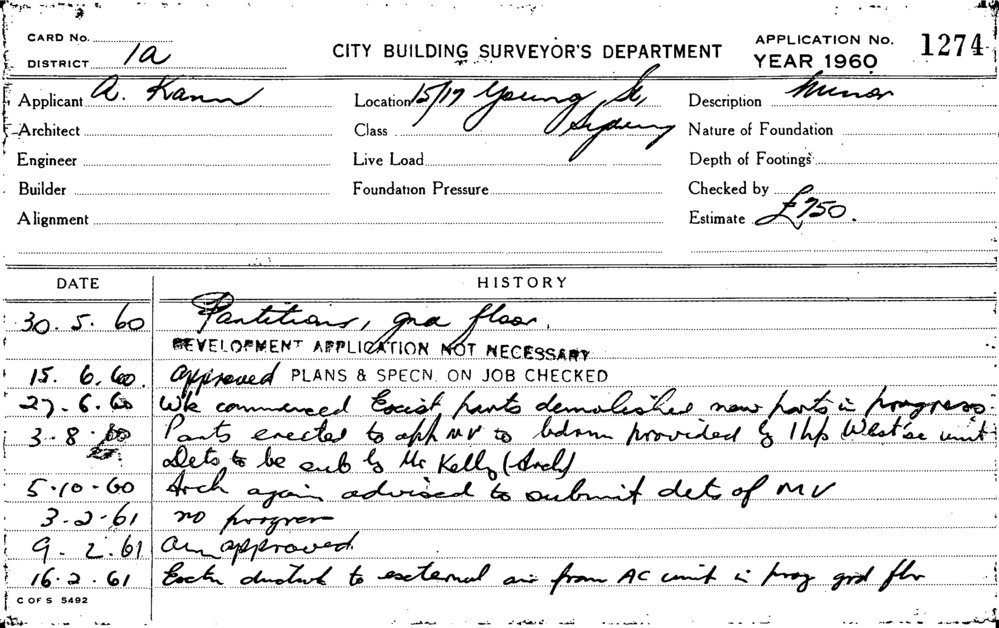 CARD No.
DISTRICT 1a
CITY BUILDING SURVEYOR'S DEPARTMENT
APPLICATION No. 1274
YEAR 1960
Applicant A. Kann
Location 15/17 Young St, Sydney
Description Minor
Architect
Class
Nature of Foundation
Engineer
Live Load
Depth of Footings
Builder
Foundation Pressure
Checked by
Alignment
Estimate £750.
DATE HISTORY
30.5.60 Partitions, gnd floor.
DEVELOPMENT APPLICATION NOT NECESSARY
15.6.60. Approved PLANS & SPECN. ON JOB CHECKED
27.6.60 Wk commenced Exist parts demolished new parts in progress.
3-8-60 Parts erected to app MV to bdrm provided by 1 hp West'se unit
Dets to be sub by Mr Kelly (Arch)
5-10-60 Arch again advised to submit dets of MV
3-2-61 no progress
9-2.61 approved.
16-2.61 ductwk to external air from AC unit in prog grd flr
C OF S 5492